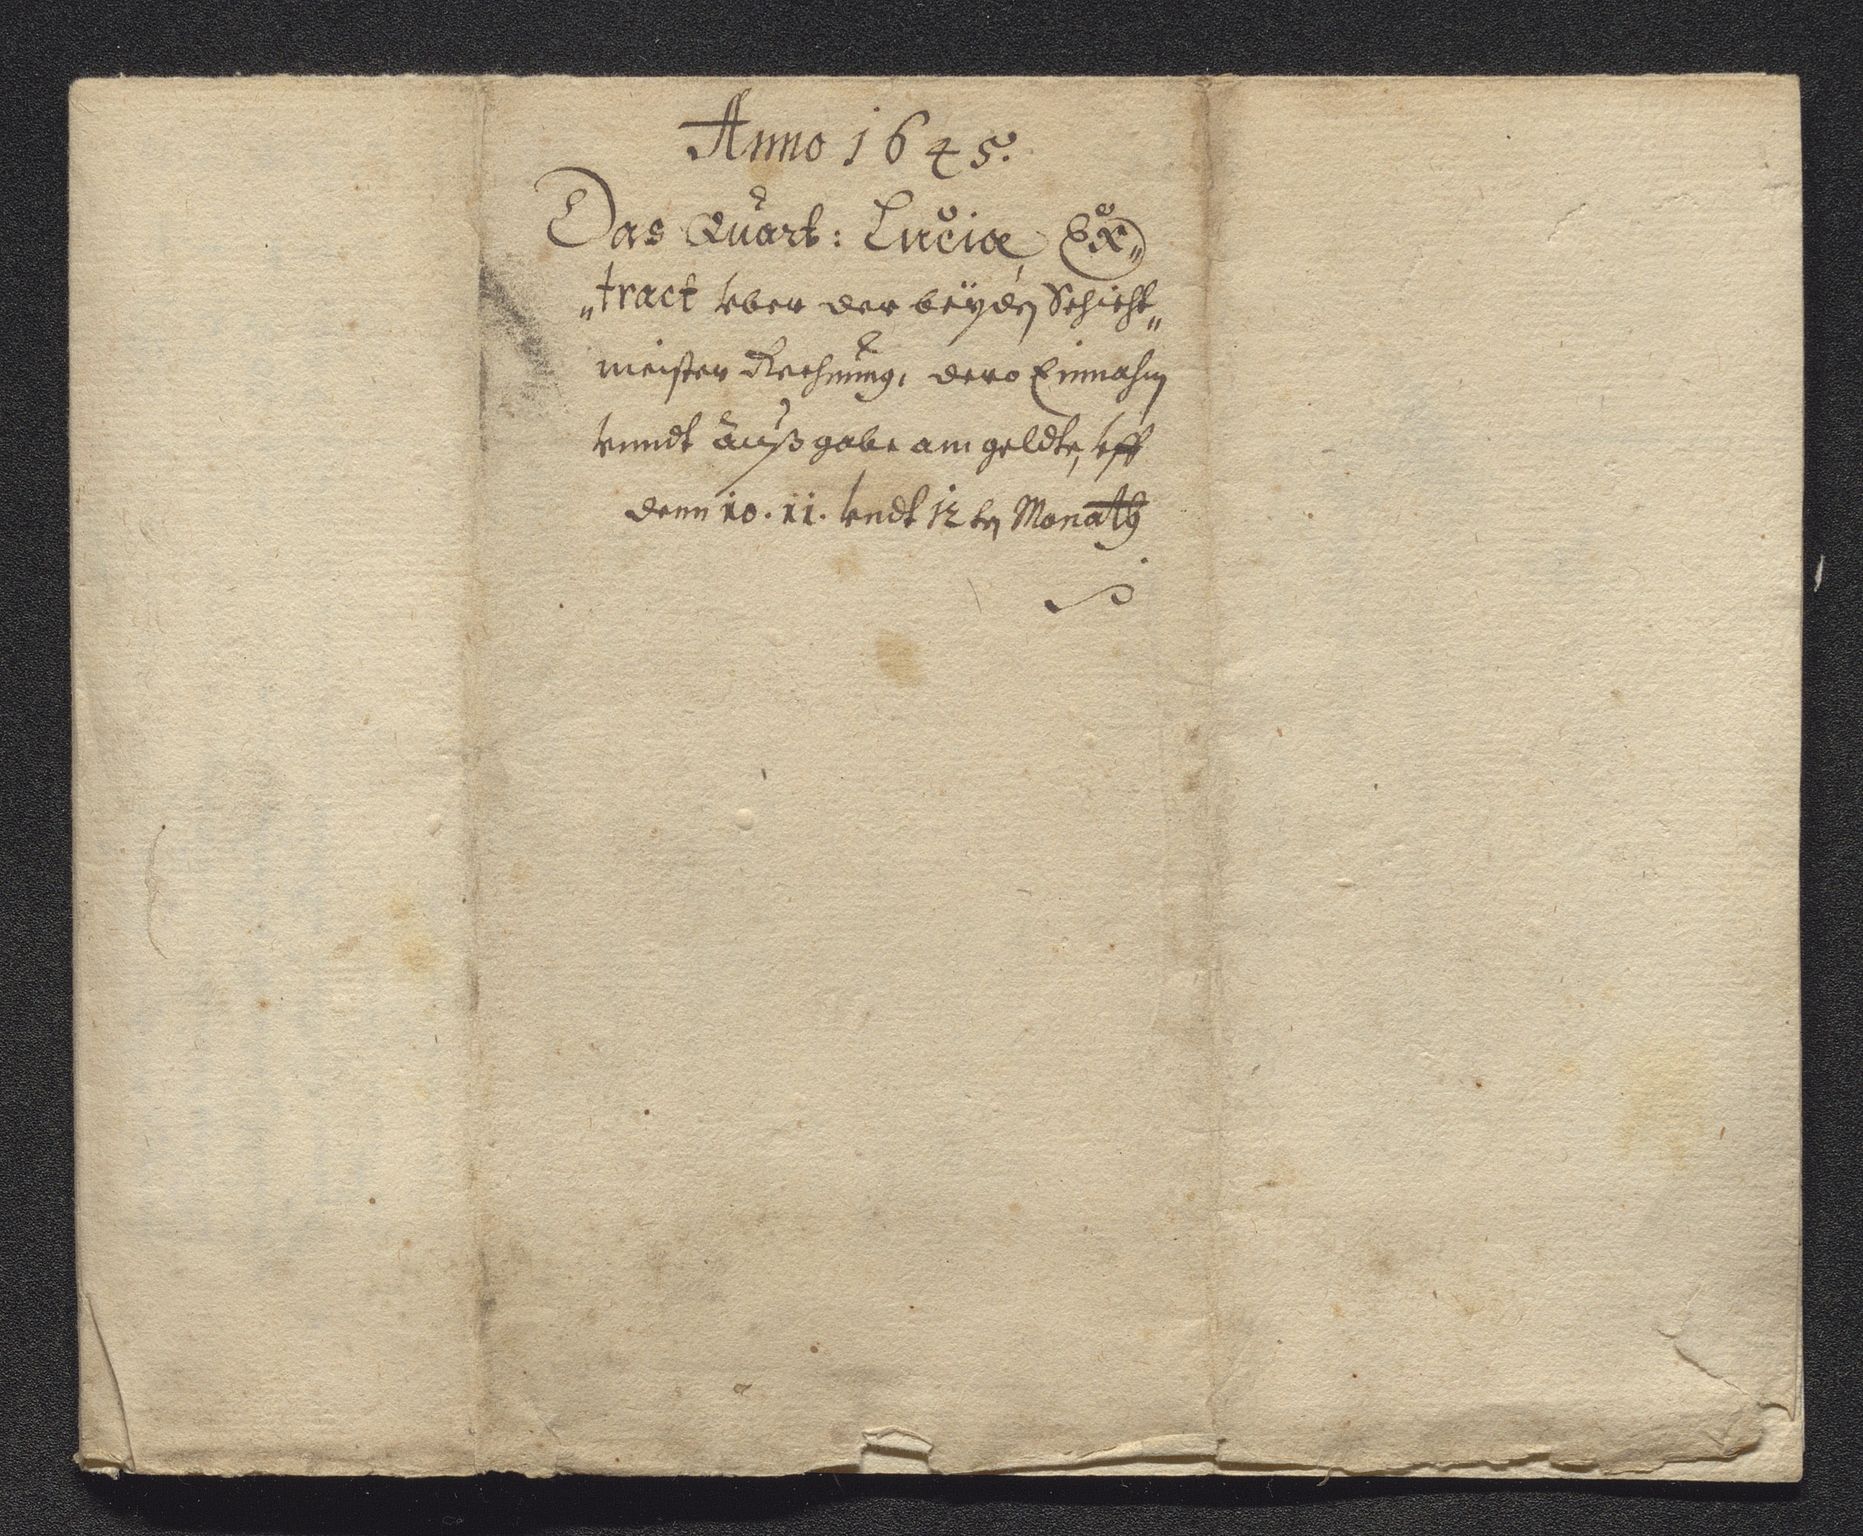 Anno 1645.
Das Quart: Luciæ, Ex„
„tract vber der beÿden Schicht„
meister Rechnung, dero Einnahm
vnndt Außgabe am geldte, vff
denn 10. 11. vndt 12ten Monath